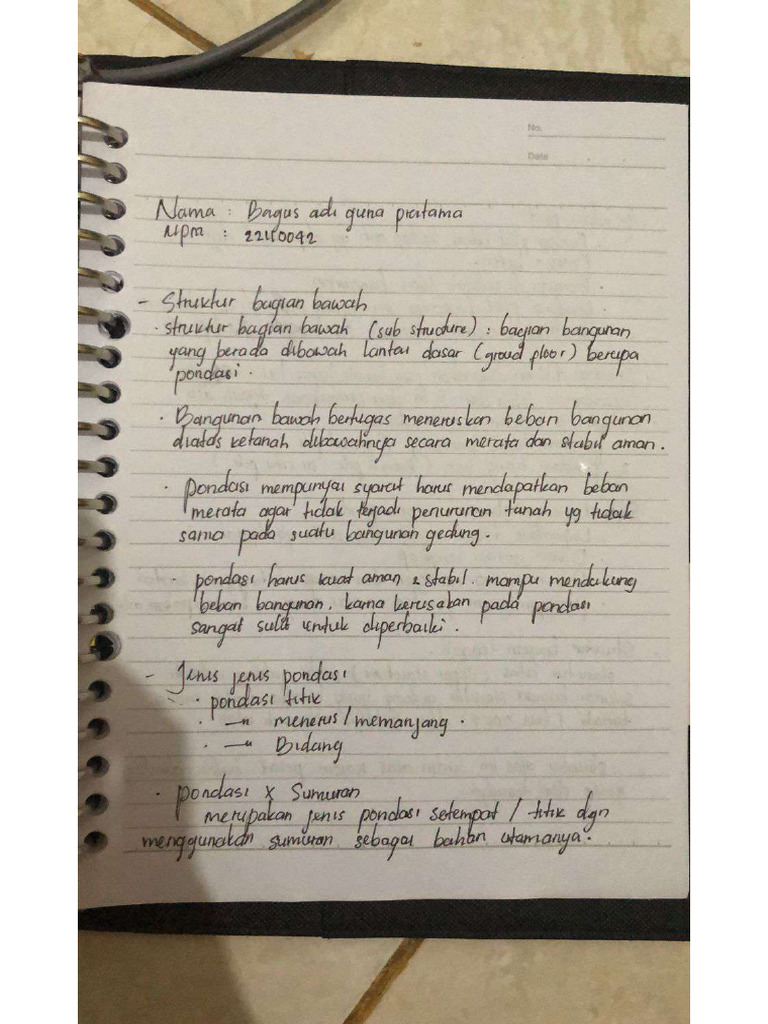 No.
Date
Nama : Bagus adi guna pratama
Npm : 22110042
- Struktur bagian bawah
· struktur bagian bawah (sub structure) : bagian bangunan
yang berada dibawah lantai dasar (groud floor) berupa
pondasi.
· Bangunan bawah bertugas meneruskan beban bangunan
diatas ketanah dibawahnya secara merata dan stabil aman.
· pondasi mempunyai syarat harus mendapatkan beban
merata agar tidak terjadi penurunan tanah yg tidak
sama pada suatu bangunan gedung.
· pondasi harus kuat aman & stabil. mampu mendukung
beban bangunan. karna kerusakan pada pondasi
sangat sulit untuk diperbaiki.
- Jenis jenis pondasi
· pondasi titik
· —"— menerus/memanjang.
· —"— Bidang
· pondasi x Sumuran
merupakan jenis pondasi setempat / titik dgn
menggunakan sumuran sebagai bahan utamanya.